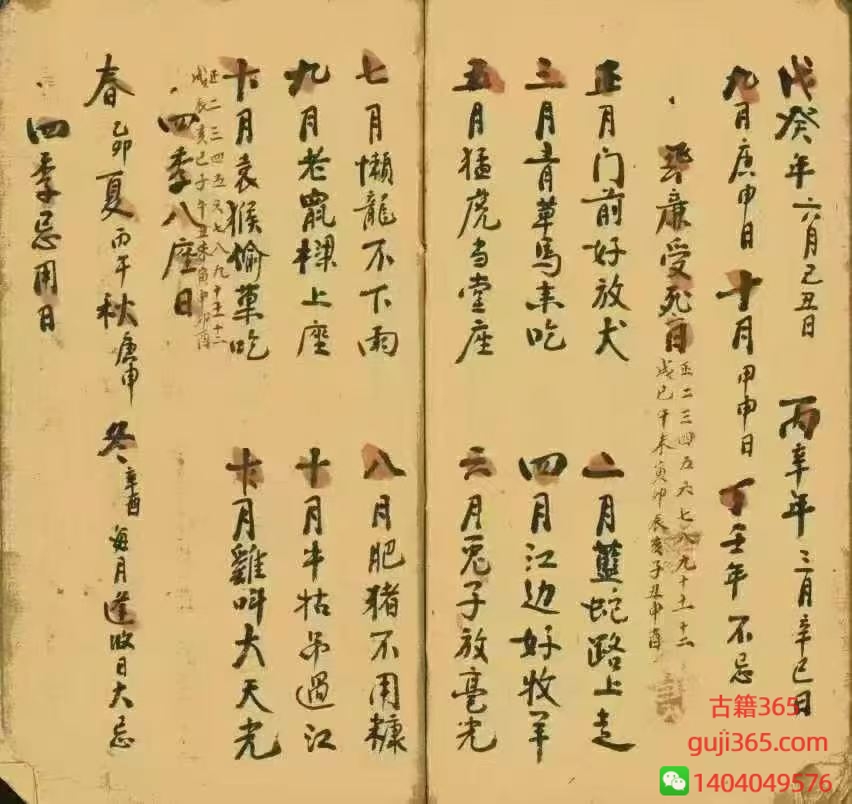 戊癸年六月己丑日 丙辛年三月辛巳日
九月庚申日 十月甲申日 丁壬年不忌
廉受死日
正二三四五六七八九十十一十二
戌巳午未寅卯辰亥子丑申酉
正月门前好放犬 二月蓝蛇路上走
三月青草马来吃 四月江边好牧羊
五月猛虎当堂座 六月兔子放毫光
七月懒龍不下雨 八月肥猪不用糠
九月老鼠樑上座 十月牛牯吊過江
月袁猴偷草吃 月雞叫大天光
正二三四五六七八九十十一十二
戌辰亥巳子午丑未寅申卯酉
四季八座日
春乙卯夏丙午秋庚申冬辛酉每月逢收日大忌
四季忌用日
古籍365
guji365.com
1404049576